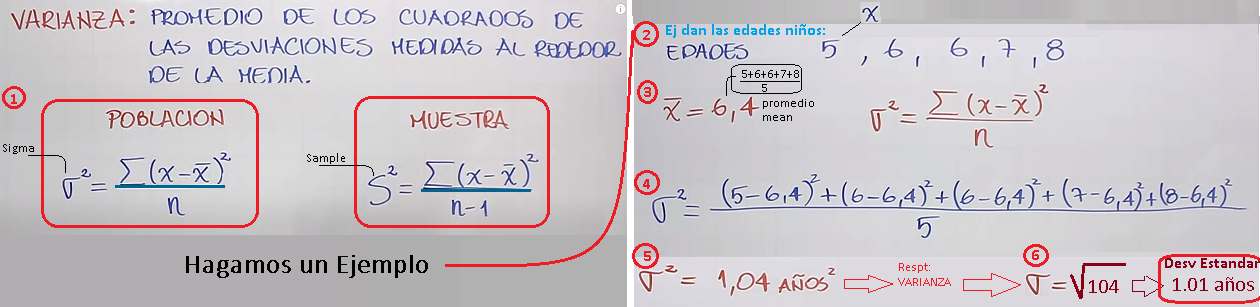 VARIANZA: PROMEDIO DE LOS CUADRADOS DE
LAS DESVIACIONES MEDIDAS AL REDEDOR
DE LA MEDIA.
1
POBLACION
Sigma
σ² = Σ(x-x̄)² / n
MUESTRA
Sample
S² = Σ(x-x̄)² / n-1
Hagamos un Ejemplo
2 Ej dan las edades niños:
x
EDADES 5 , 6 , 6 , 7 , 8
3 x̄ = 6,4
5+6+6+7+8 / 5
promedio
mean
σ² = Σ(x-x̄)² / n
4 σ² = (5-6,4)²+(6-6,4)²+(6-6,4)²+(7-6,4)²+(8-6,4)² / 5
5 σ² = 1,04 AÑOS²
Respt:
VARIANZA
6 σ = √104
Desv Estandar
1.01 años